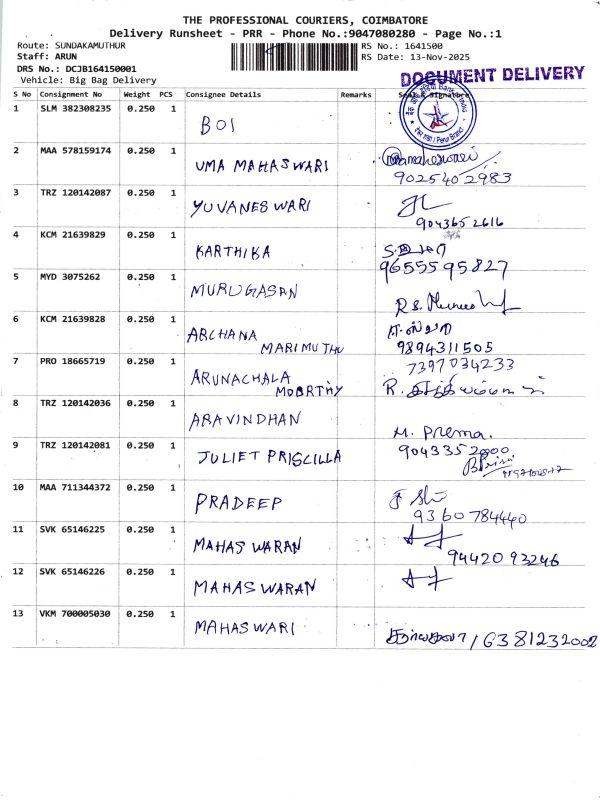 THE PROFESSIONAL COURIERS, COIMBATORE
Delivery Runsheet - PRR - Phone No.:9047080280 - Page No.:1
Route: SUNDAKAMUTHUR
RS No.: 1641500
Staff: ARUN
RS Date: 13-Nov-2025
DRS No.: DCJB164150001
Vehicle: Big Bag Delivery
DOCUMENT DELIVERY
S No Consignment No Weight PCS Consignee Details Remarks Seal & Signature
1 SLM 382308235 0.250 1 BOI
2 MAA 578159174 0.250 1 UMA MAHASWARI Umamaheswari
9025402983
3 TRZ 120142087 0.250 1 YUVANESWARI
9043652616
4 KCM 21639829 0.250 1 KARTHIKA
9655595827
5 MYD 3075262 0.250 1 MURUGASAN
6 KCM 21639828 0.250 1 ARCHANA
MARIMUTHU
9894311505
7 PRO 18665719 0.250 1 ARUNACHALA
MOORTHY
7397034233
8 TRZ 120142036 0.250 1 ARAVINDHAN
M. Prema.
9 TRZ 120142081 0.250 1 JULIET PRISCILLA
10 MAA 711344372 0.250 1 PRADEEP
9360784440
11 SVK 65146225 0.250 1 MAHASWARAN
9442093246
12 SVK 65146226 0.250 1 MAHASWARAN
13 VKM 700005030 0.250 1 MAHASWARI
/ 6381232002